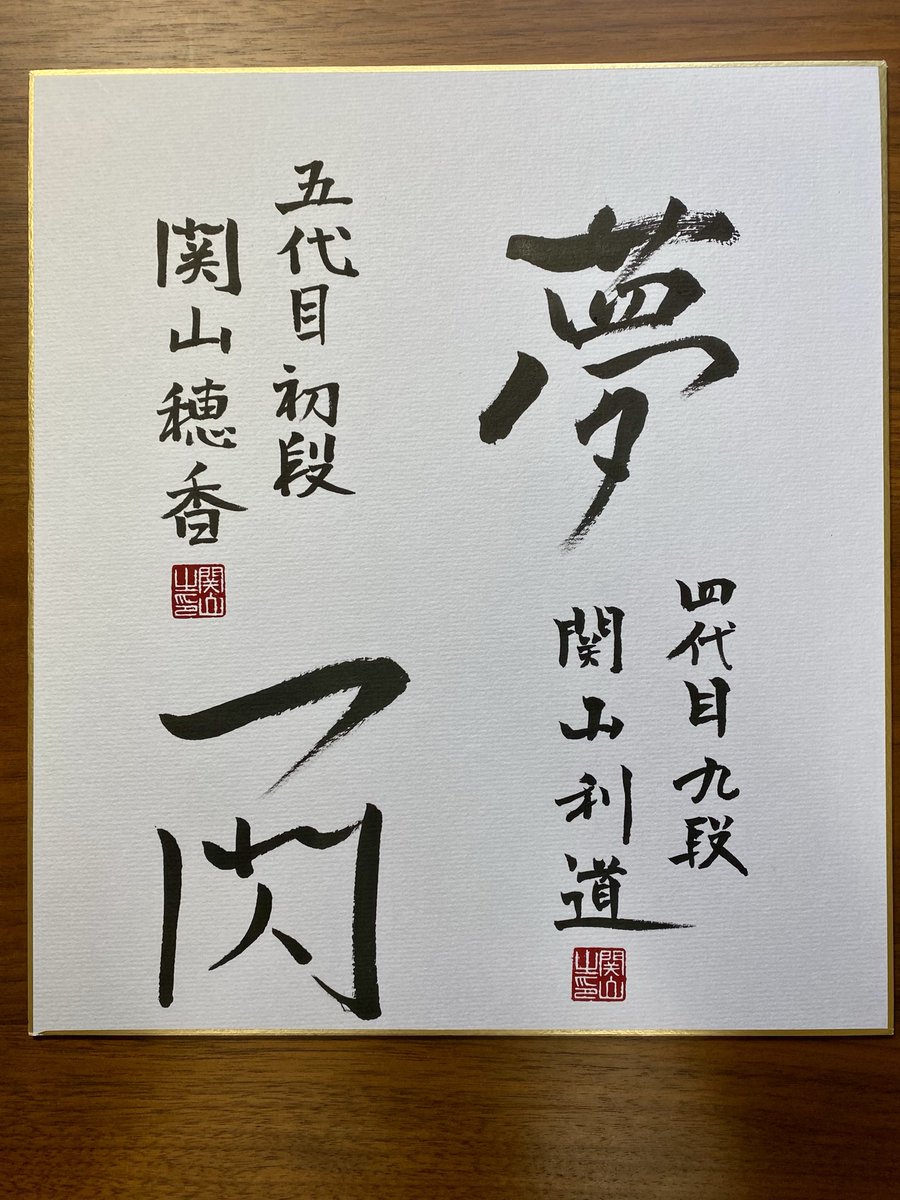 夢
四代目九段
関山利道
関山之印
五代目初段
関山穂香
関山之印
一閃